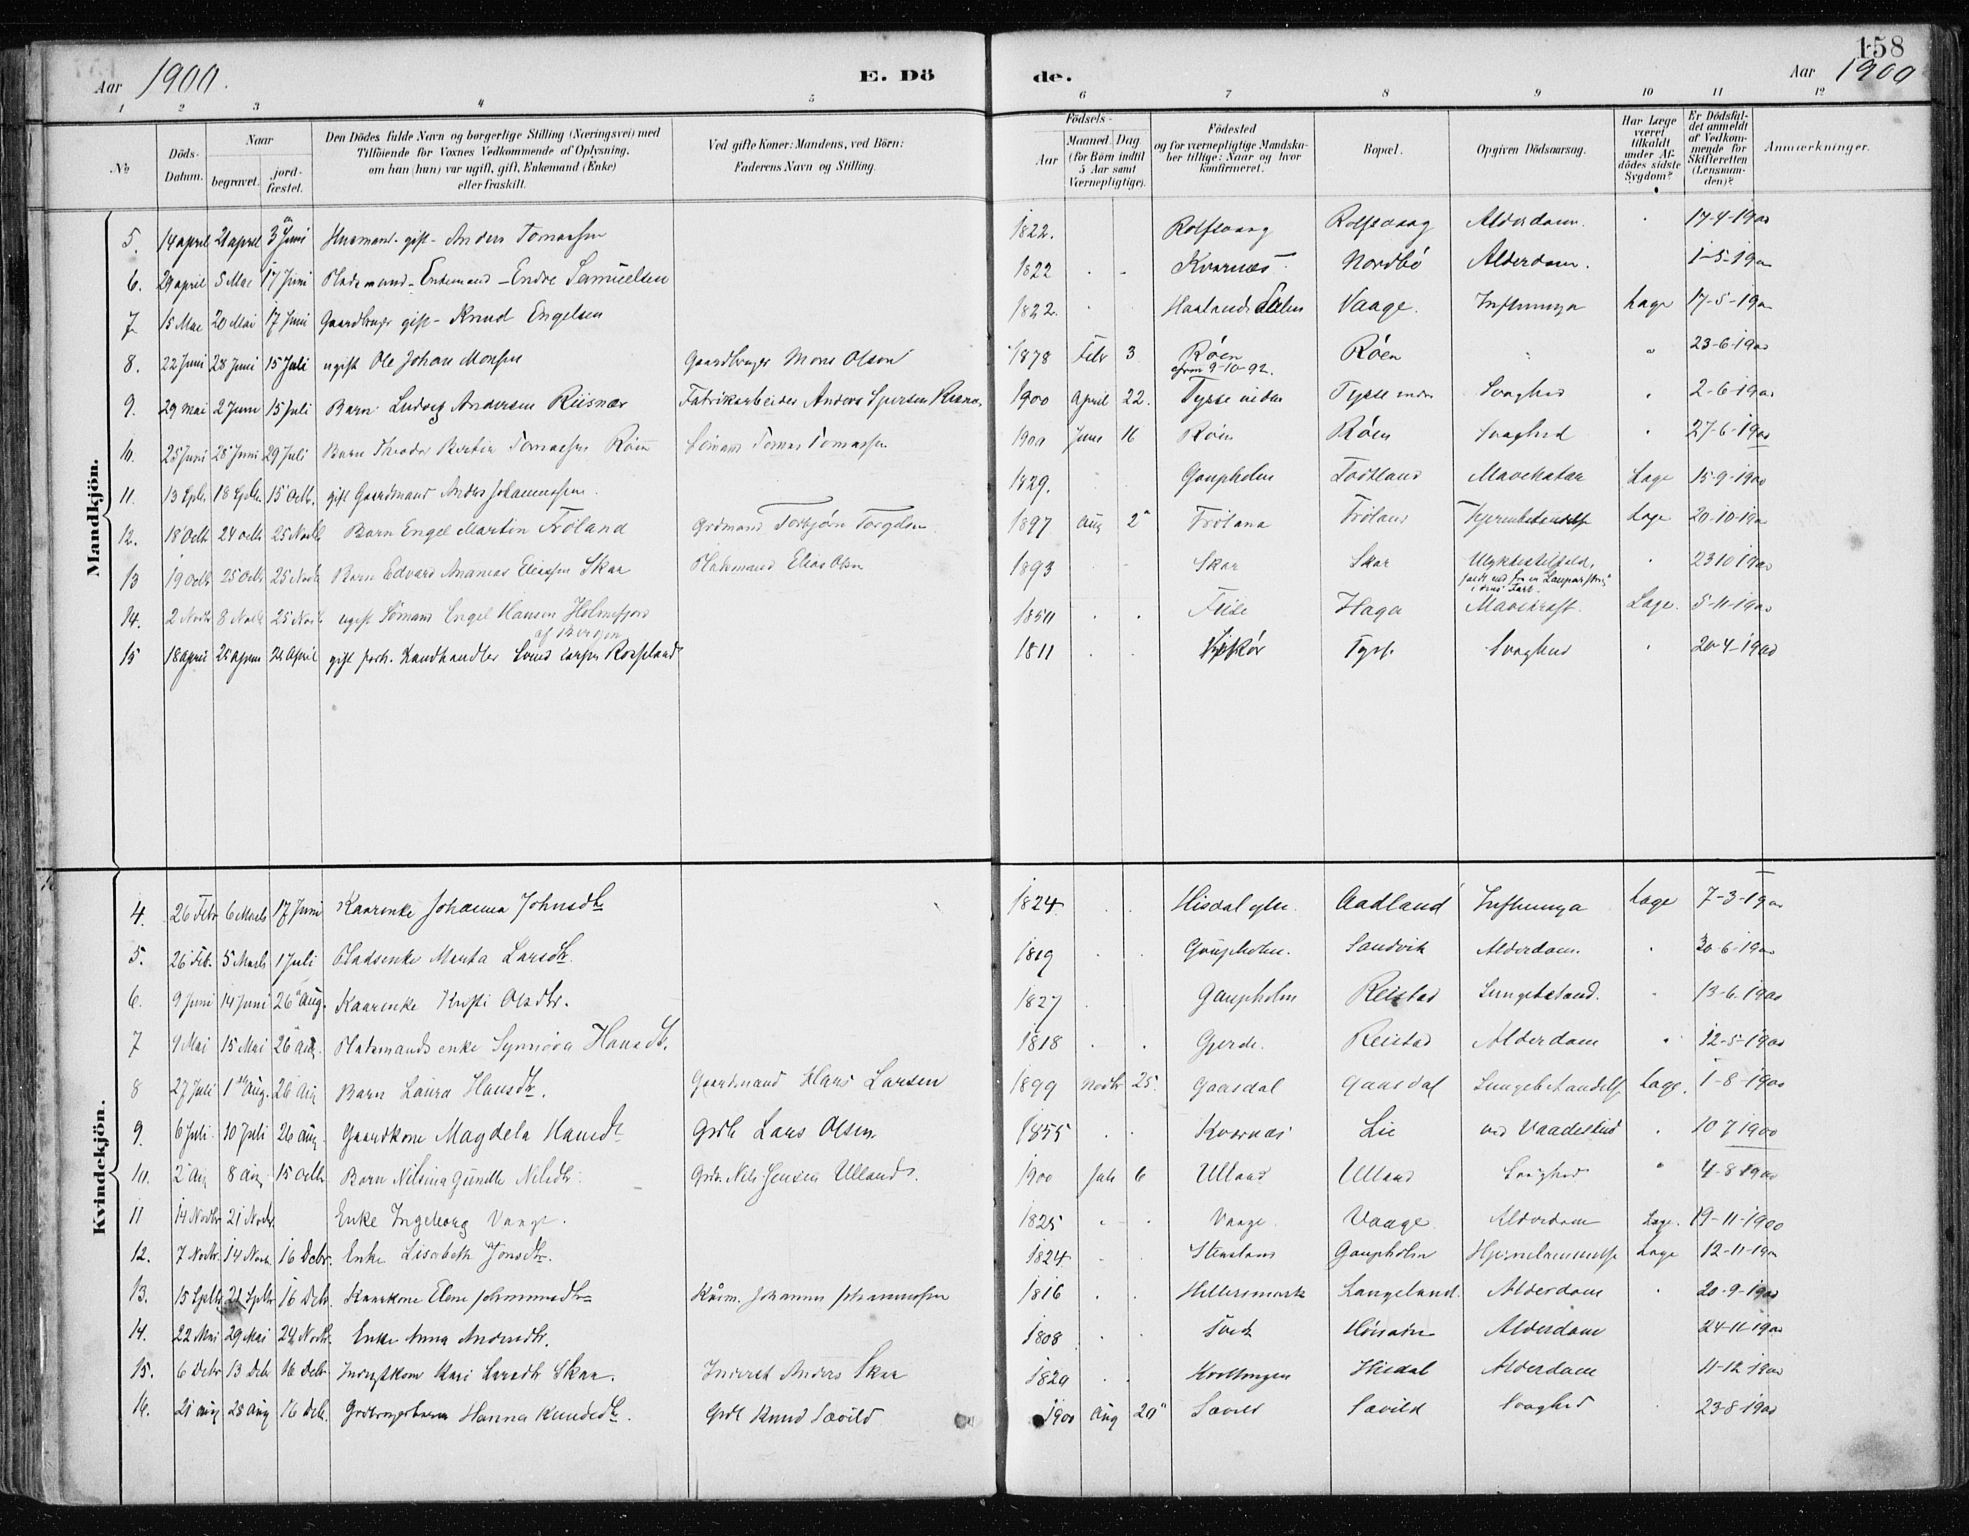 158
Aar 1900. E. Dö de. Aar 1900
1 2 3 4 5 6 7 8 9 10 11 12
№ Döds-Datum. Naar begravet. jord-fæstet. Den Dödes fulde Navn og borgerlige Stilling (Næringsvei) med Tilföiende for Voxnes Vedkommende af Oplysning, om han (hun) var ugift, gift, Enkemand (Enke) eller fraskilt. Ved gifte Koner: Mandens, ved Börn: Faderens Navn og Stilling. Födsels- Aar Maaned Dag (for Börn indtil 5 Aar samt Værnepligtige). Födested og for værnepligtige Mandskaber tillige: Naar og hvor konfirmeret. Bopæl. Opgiven Dödsaarsag. Har Læge været tilkaldt under Afdödes sidste Sygdom? Er Dödsfaldet anmeldt af Vedkommende for Skifteretten (Lensmanden)? Anmærkninger.
Mandkjön.
5. 14 april 21 april 3 Juni Husmand. gift - Anders Tomassen 1822. Rolfsvaag Rolfsvaag Alderdom. 17-4-1900
6. 29 april 5 Mai 17 Juni Pladsmand - Enkemand - Endre Samuelsen 1822 Kvarnæs Nordbö Alderdom. 1-5-1900
7 15 Mai 20 Mai 17 Juni Gaardbruger gift - Knud Engelsen 1822. Haalandsdalen Vaage. Influenza Læge 17-5-1900
8. 22 Juni 28 Juni 15 Juli ugift Ole Johan Monsen Gaardbruger Mons Olsen 1878 Febr 3 Röen Röen 23-6-1900
9-10-92.
9. 29 Mai 2 Juni 15 Juli Barn Ludvig Andersen Riisnæs Fabrikarbeider Anders 1900 April 22. Tysse Tysse Svaghed 2-6-1900
10. 25 Juni 28 Juni 29 Juli Barn Bertin Tomassen Röen Tomas Tomassen 1900 Juni 16 Röen Röen Svaghed 27-6-1900
11. 13 Septr 18 Septr 15 Octb. gift Gaardmand Anders Johannessen. 1829. Gaupholm Todtland Mavekatar Læge 15-9-1900
12. 18 Octb 24 octb 25 Novb Barn Engel Martin Fröland Grdmand Torbjörn 1897 Aug 2 Fröland Fröland Læge 20-10-1900
13 19 octb 25 Octb 25 Novb Barn Edvard Ananias Eliassen Skar Pladsmand Elias Olsen 1893 Skar Skar Ulykkestilfælde, 23 10 1900
14. 2 Novb 8 Novb 25 Novb ugift Sömand Engel Hansen Holmefjord 1850 Haga Mavekræft. Læge. 5-11-1900
af Bergen
15 18 april 25 april 24 April gift forh. Kandhandler Larsen Rosseland 1811 Vikör Tysse Svaghed 20-4-1900
Kvindekjön.
4. 26 Febr 6 Marts 17 Juni Kaarenke Johanna Johnsdtr 1824. Hisdal Aadland Influenza Læge 7-3-1900
5. 26 Feb. 5 Marts 1 Juli Pladsenke Marta Larsdtr. 1819 Gaupholm. Sandvik Alderdom. 30-6-1900
6. 9 Juni 14 Juni 26 Aug. Kaarenke Kristi Olsdtr. 1827 Gaupholm Reistad 13-6-1900
7 9 Mai 15 Mai 26 Aug. Pladsmandsenke Synnöva Hansdtr. 1818 Gjerde. Reistad Alderdom 12-5-1900
8 27 Juli 1 Aug. 26 Aug Barn Laura Hansdtr. Gaardmand Hans Larsen 1899 Novbr 25. Gaasdal Gaasdal Læge. 1-8-1900
9. 6 Juli 10 Juli 26 aug Gaardkone Magdela Hansdtr Grdb Lars Olsen 1855 Kvarnæs Lie ved Vaadeskud 10 7 1900
10. 2 Aug 8 Aug 15 octb Barn Nilsina Nilsdtr. Grdb. Nils Jensen Ulland. 1900 Juli 6 Ulland Ulland Svaghed 4-8-1900
11 14 Novbr 21 Novbr. Enke Ingeborg Vaage. 1825 Vaage. Vaage. Alderdom Læge. 19-11-1900
12. 7 Novbr. 14 Novb. 16 Decbr. Enke Lisabeth Jonsdtr. 1824 Gaupholm Læge 12-11-1900
13. 15 Septbr 21 Septbr 16 Decb. Kaarkone Elene Johannesdtr Kaarm. Johannes Johannessen 1816 Langeland. Alderdom 20-9-1900
14. 22 Mai 29 Mai 24 Novbr. Enke Anna Andersdtr. 1808 Alderdom 24-11-1900
15. 6 Decbr 13 Dcb 16 Decb. Kari Larsdtr Skar. Inderst Anders Skar 1820 Hisdal Alderdom 11-12-1900
16. 21 Aug 28 Aug 16 Dcb. Hanna Knudsdtr. Grdb Knud Sævild 1900 Aug 20 Sævild Sævild Svaghed 23-8-1900